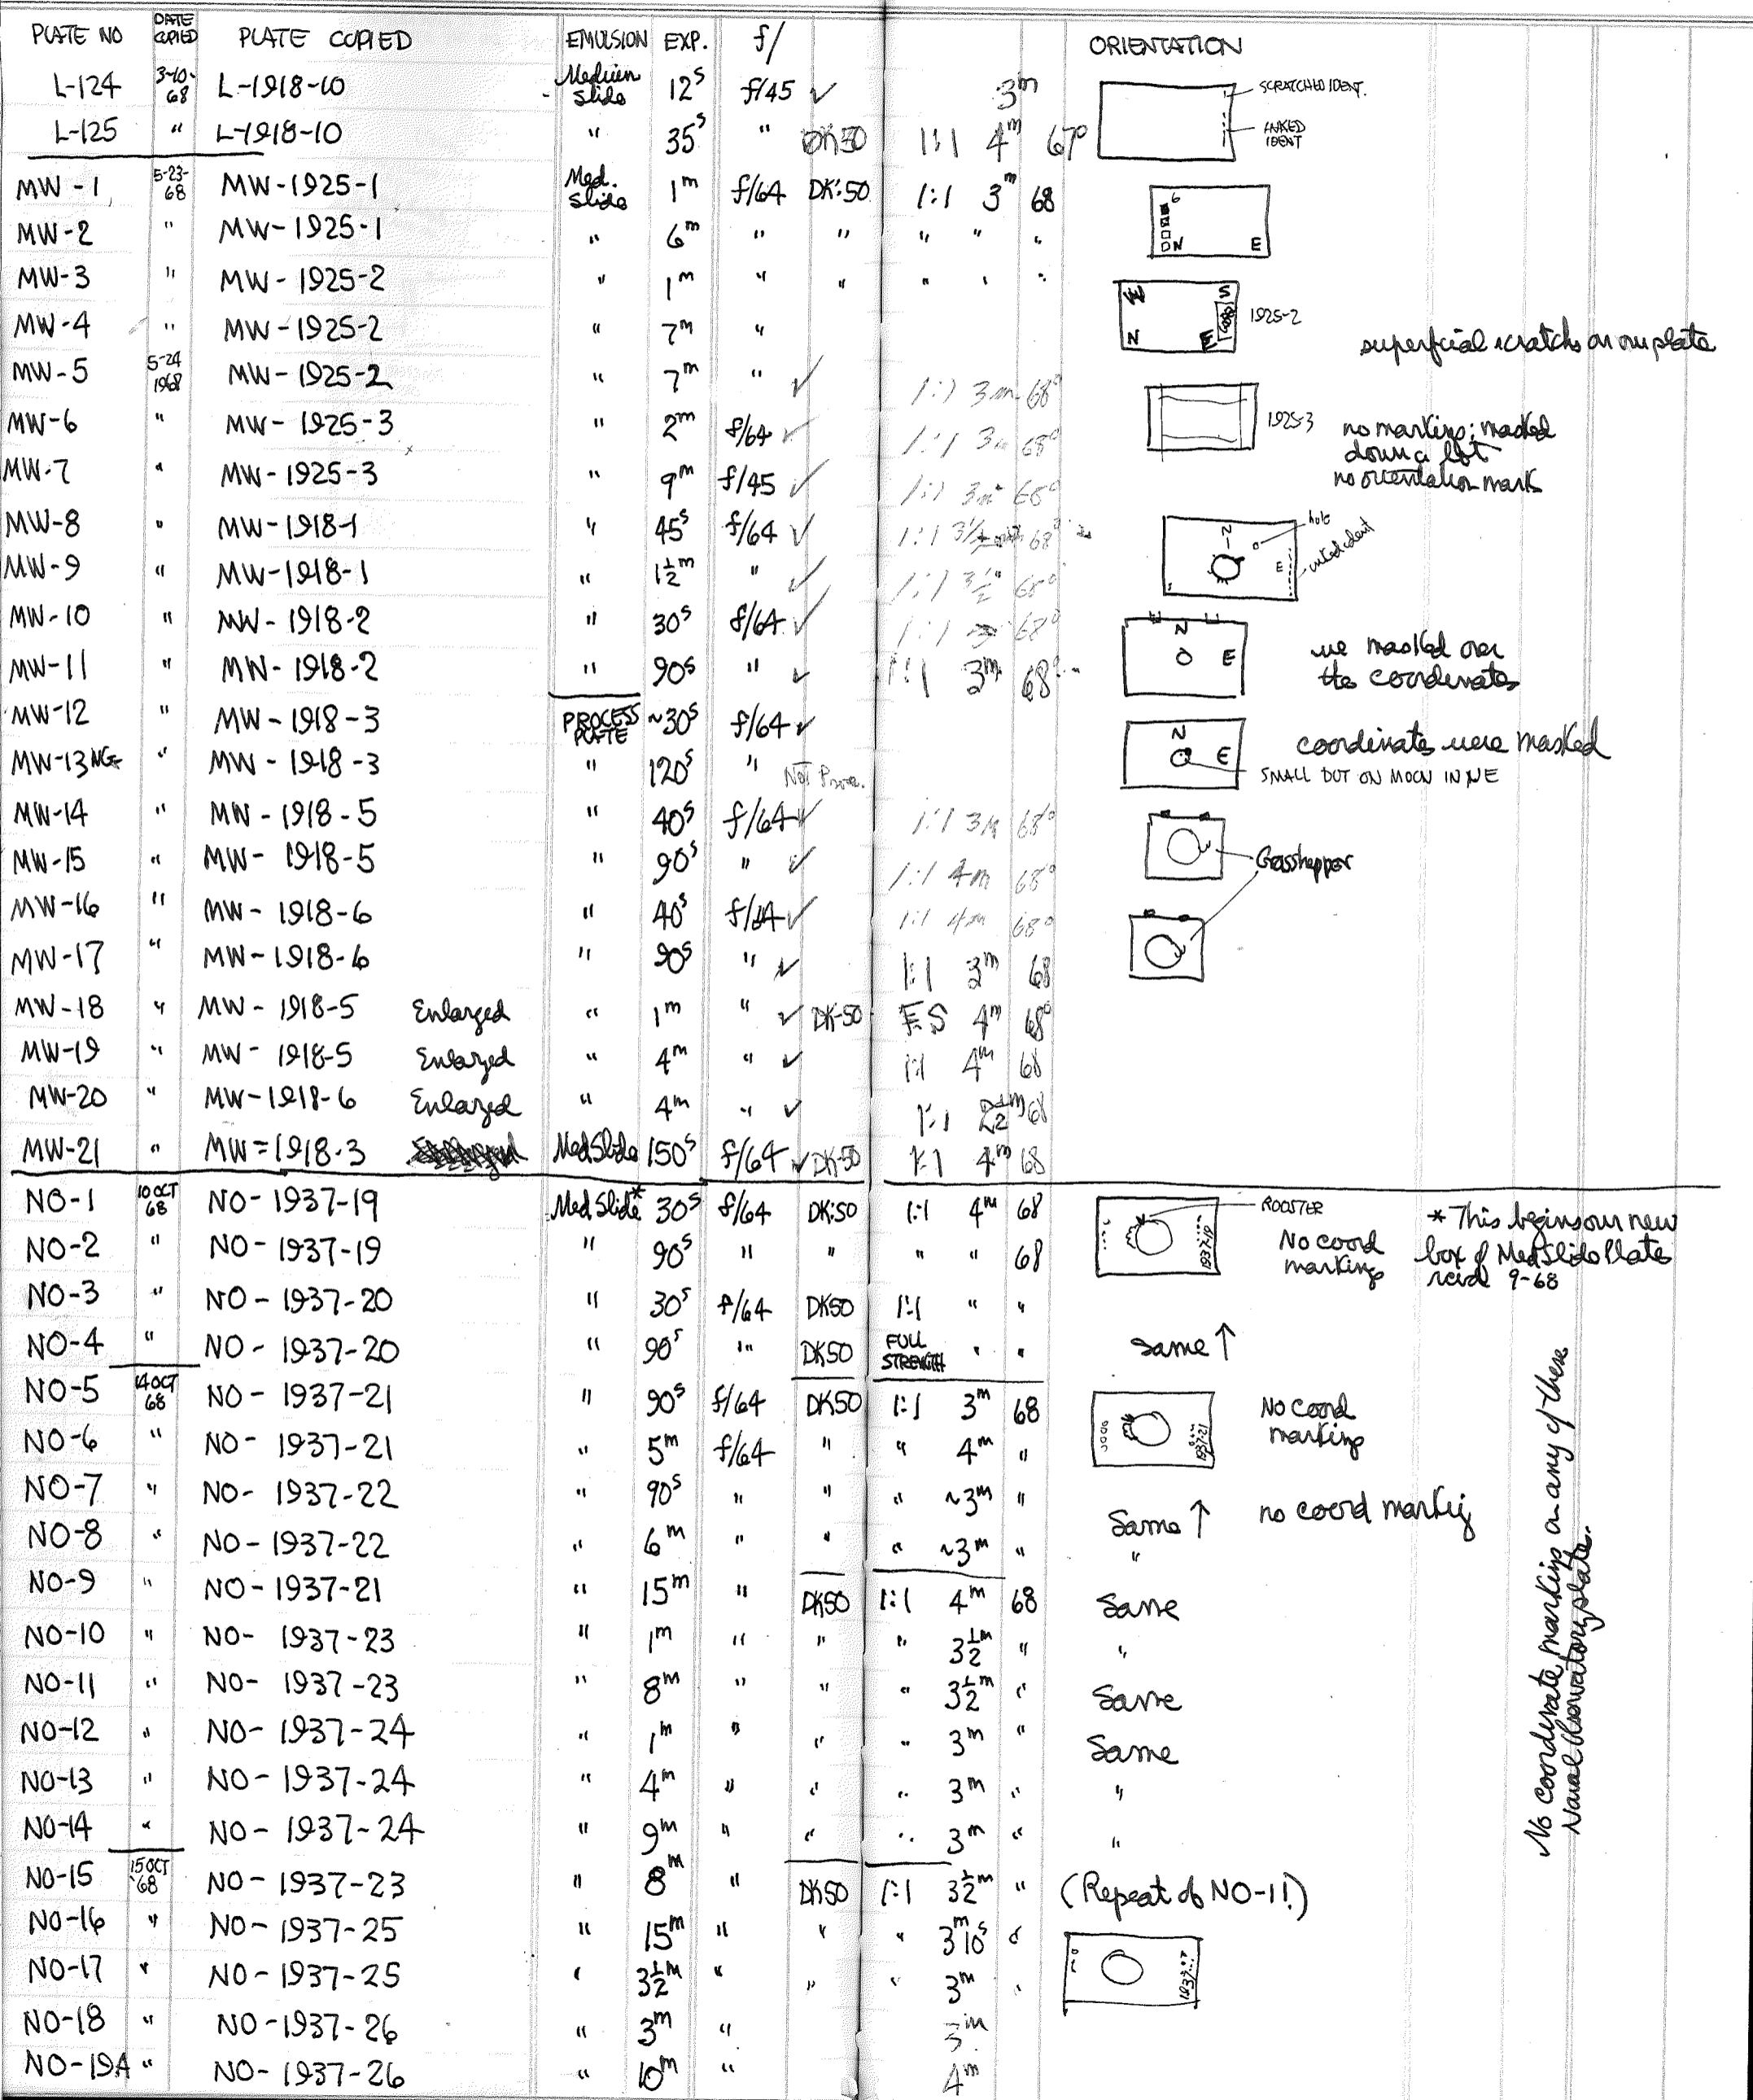 PLATE NO DATE COPIED PLATE COPIED EMULSION EXP. f/ ORIENTATION
L-124 3-10-68 L-1918-10 Medium Slide 12s f/45 ✓ 3m SCRATCHED IDENT.
L-125 " L-1918-10 " 35s " DK50 1:1 4m 67° INKED IDENT
MW-1 5-23-68 MW-1925-1 Med. Slide 1m f/64 DK-50 1:1 3m 68 6
MW-2 " MW-1925-1 " 6m " " " " " N E
MW-3 " MW-1925-2 " 1m " " " " " W S
MW-4 " MW-1925-2 " 7m " N E 1925-2 superficial scratchs on our plate
MW-5 5-24 1968 MW-1925-2 " 7m " ✓ 1:1 3m 68°
MW-6 " MW-1925-3 " 2m f/64 ✓ 1:1 3m 68° 1925-3 no marking; masked down a lot
MW-7 " MW-1925-3 " 9m f/45 ✓ 1:1 3m 68° no orientation mark
MW-8 " MW-1918-1 " 45s f/64 ✓ 1:1 3½ 68° N hole
MW-9 " MW-1918-1 " 1½m " ✓ 1:1 3½ 68° E inked ident
MW-10 " MW-1918-2 " 30s f/64 ✓ 1:1 3 68° N we masked over
MW-11 " MW-1918-2 " 90s " ✓ 1:1 3m 68° E the coordinates
MW-12 " MW-1918-3 PROCESS PLATE ~30s f/64 ✓ N coordinates were masked
MW-13 NG " MW-1918-3 " 120s " Not Proc. E SMALL DOT ON MOON IN NE
MW-14 " MW-1918-5 " 40s f/64 ✓ 1:1 3m 68°
MW-15 " MW-1918-5 " 90s " ✓ 1:1 4m 68° Grasshopper
MW-16 " MW-1918-6 " 40s f/64 ✓ 1:1 4m 68°
MW-17 " MW-1918-6 " 90s " ✓ 1:1 3m 68
MW-18 " MW-1918-5 Enlarged " 1m " ✓ DK-50 F.S 4m 68°
MW-19 " MW-1918-5 Enlarged " 4m " ✓ 1:1 4m 68
MW-20 " MW-1918-6 Enlarged " 4m " ✓ 1:1 2½m 68
MW-21 " MW=1918-3 Med Slide 150s f/64 ✓ DK-50 1:1 4m 68
NO-1 10 OCT 68 NO-1937-19 Med Slide* 30s f/64 DK-50 1:1 4m 68 ROOSTER * This begins our new
NO-2 " NO-1937-19 " 90s " " " " 68 1937-19 No coord marking box of Med Slide Plates recvd 9-68
NO-3 " NO-1937-20 " 30s f/64 DK50 1:1 " "
NO-4 " NO-1937-20 " 90s " DK50 FULL STRENGTH " " Same ↑
NO-5 14 OCT 68 NO-1937-21 " 90s f/64 DK50 1:1 3m 68 No coord marking
NO-6 " NO-1937-21 " 5m f/64 " " 4m " 1937-21
NO-7 " NO-1937-22 " 90s " " " ~3m " Same ↑ no coord marking
NO-8 " NO-1937-22 " 6m " " " ~3m " "
NO-9 " NO-1937-21 " 15m " DK50 1:1 4m 68 Same
NO-10 " NO-1937-23 " 1m " " " 3½m " "
NO-11 " NO-1937-23 " 8m " " " 3½m " Same
NO-12 " NO-1937-24 " 1m " " " 3m " Same
NO-13 " NO-1937-24 " 4m " " " 3m " "
NO-14 " NO-1937-24 " 9m " " " 3m " "
NO-15 15 OCT 68 NO-1937-23 " 8m " DK50 1:1 3½m " (Repeat of NO-11!)
NO-16 " NO-1937-25 " 15m " " " 3m10s "
NO-17 " NO-1937-25 " 3½m " " " 3m " 1937...
NO-18 " NO-1937-26 " 3m " 3m
NO-19A " NO-1937-26 " 10m " 4m
No coordinate markings on any of these
Naval Observatory plates.